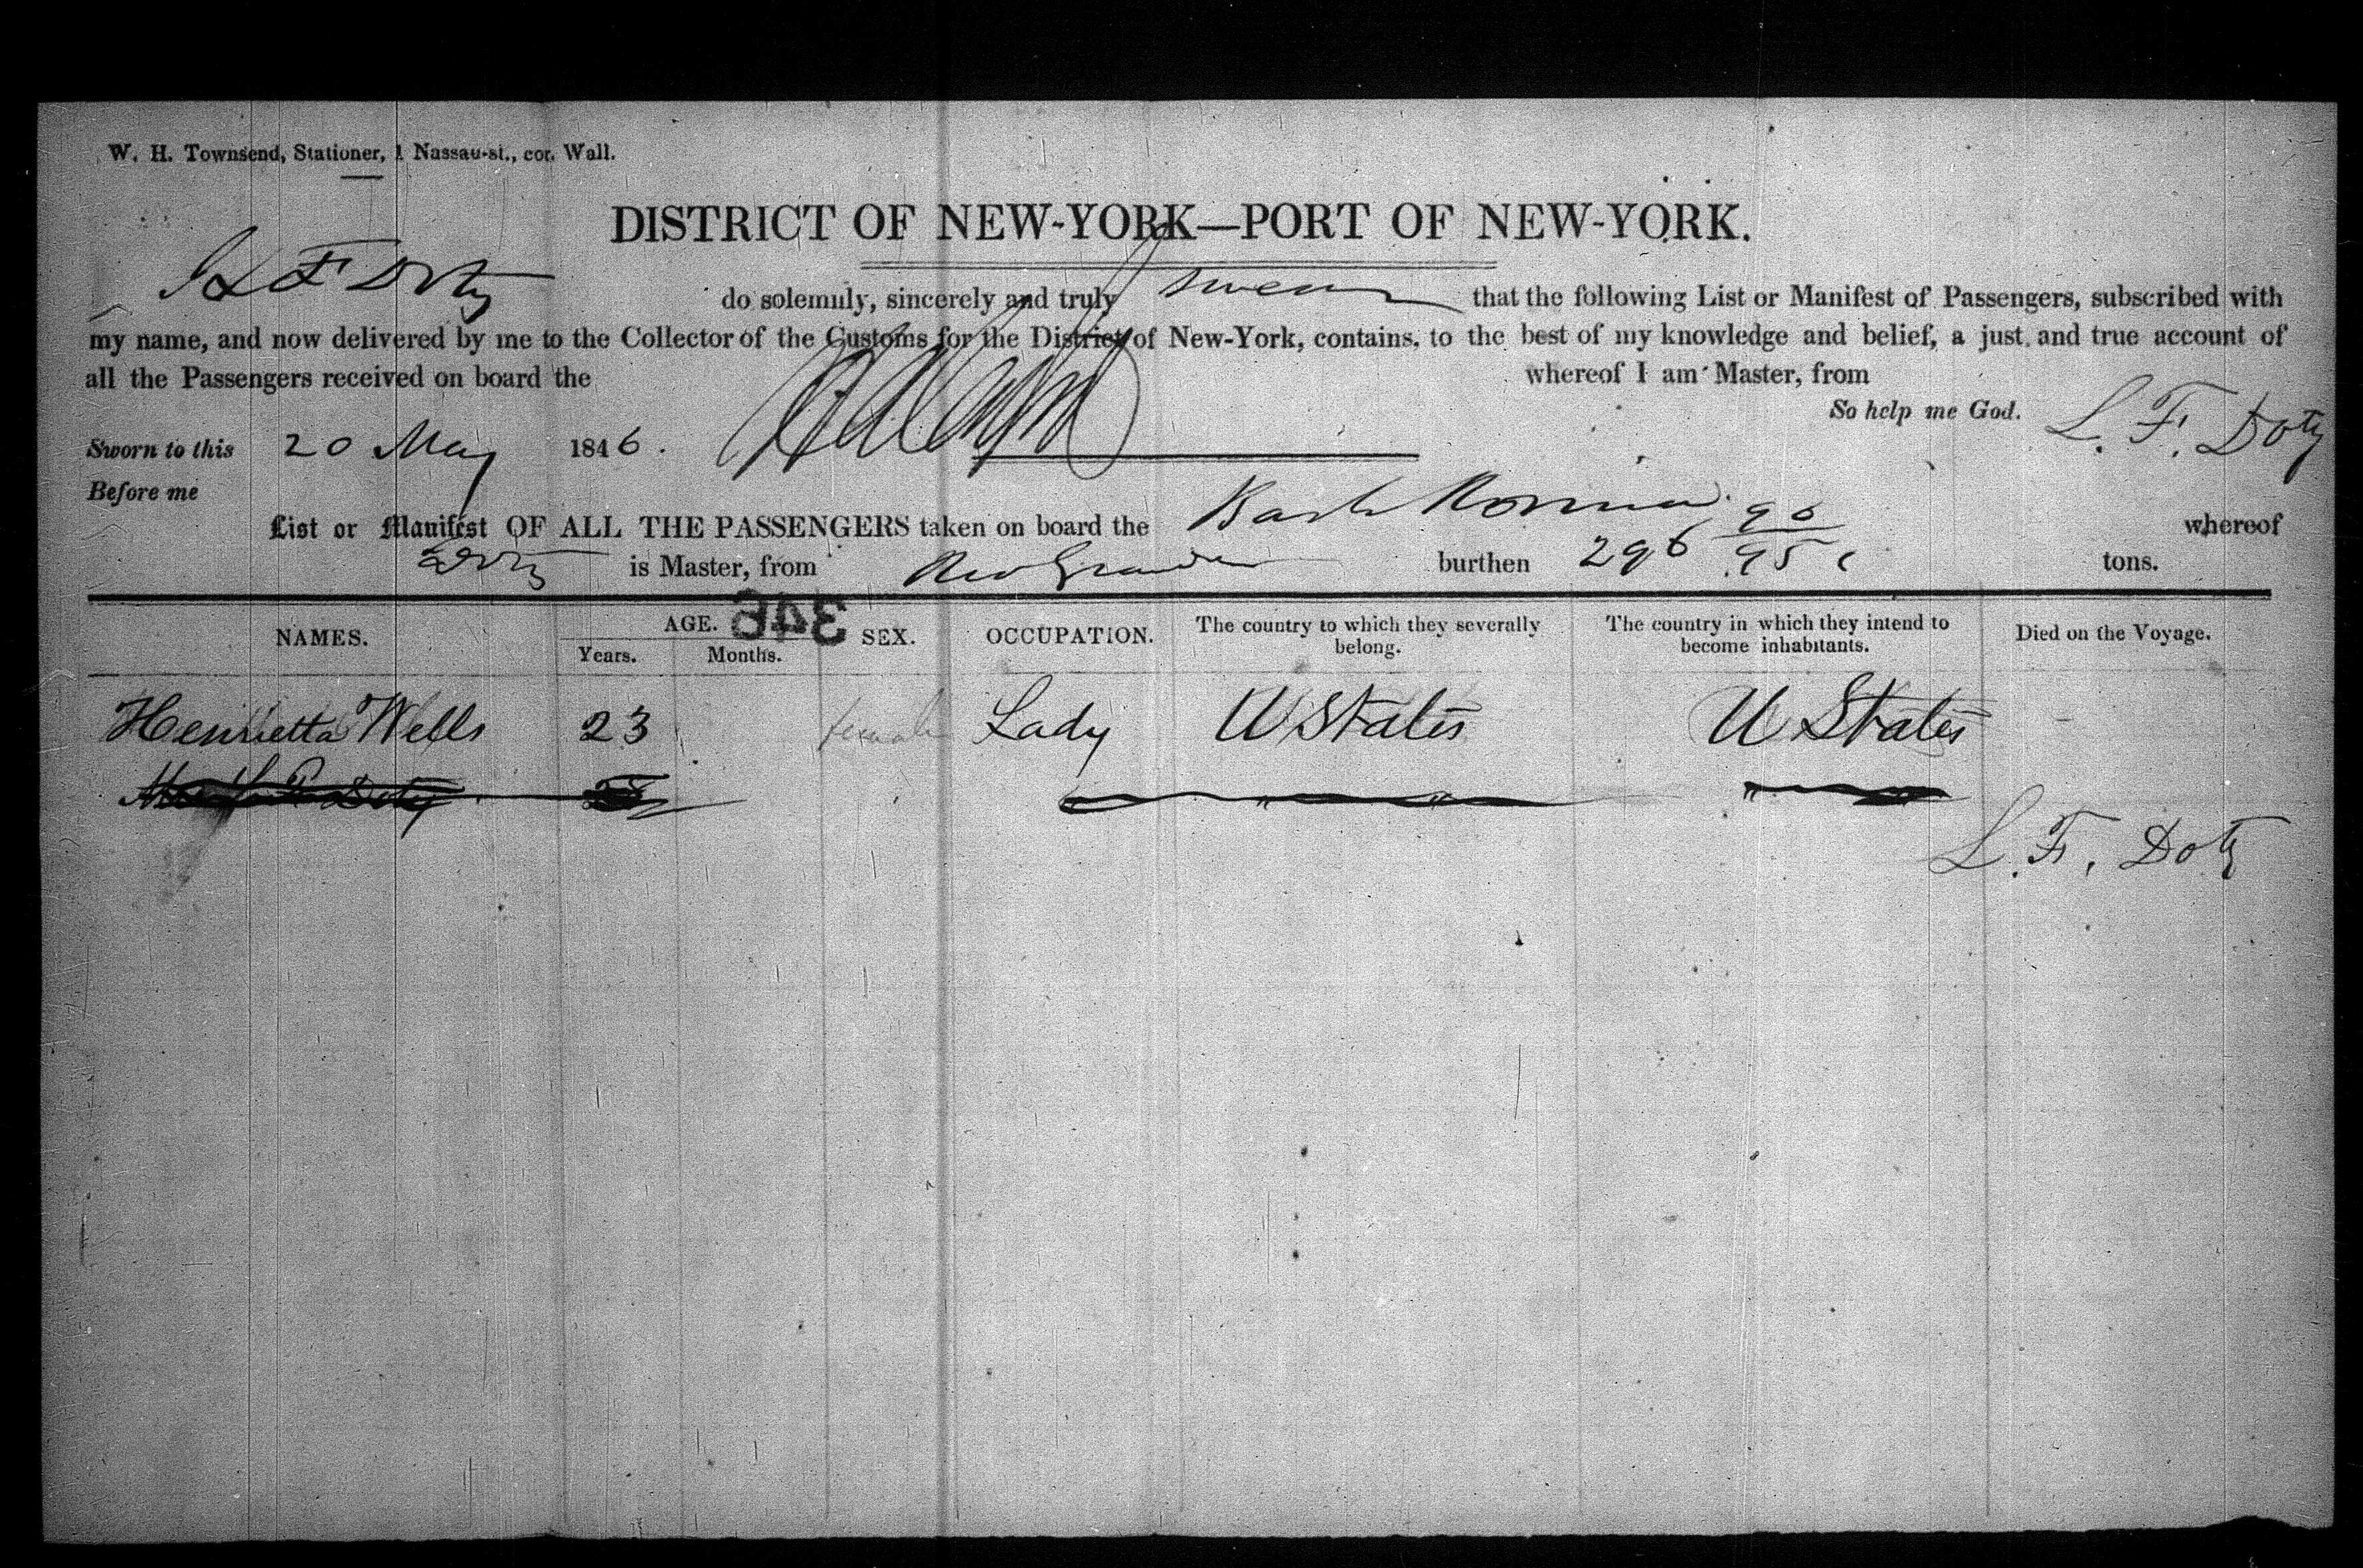 W. H. Townsend, Stationer, 1 Nassau-st., cor. Wall.
DISTRICT OF NEW-YORK—PORT OF NEW-YORK.
L F Doty do solemnly, sincerely and truly swear that the following List or Manifest of Passengers, subscribed with
my name, and now delivered by me to the Collector of the Customs for the District of New-York, contains, to the best of my knowledge and belief, a just and true account of
all the Passengers received on board the whereof I am Master, from
So help me God. L. F. Doty
Sworn to this 20 May 1846.
Before me
List or Manifest OF ALL THE PASSENGERS taken on board the Bark 296 90/95 whereof
Doty is Master, from Rio Grande burthen tons.
346
NAMES. AGE. SEX. OCCUPATION. The country to which they severally belong. The country in which they intend to become inhabitants. Died on the Voyage.
Years. Months.
Henrietta Wells 23 female Lady U States U States
L. F. Doty